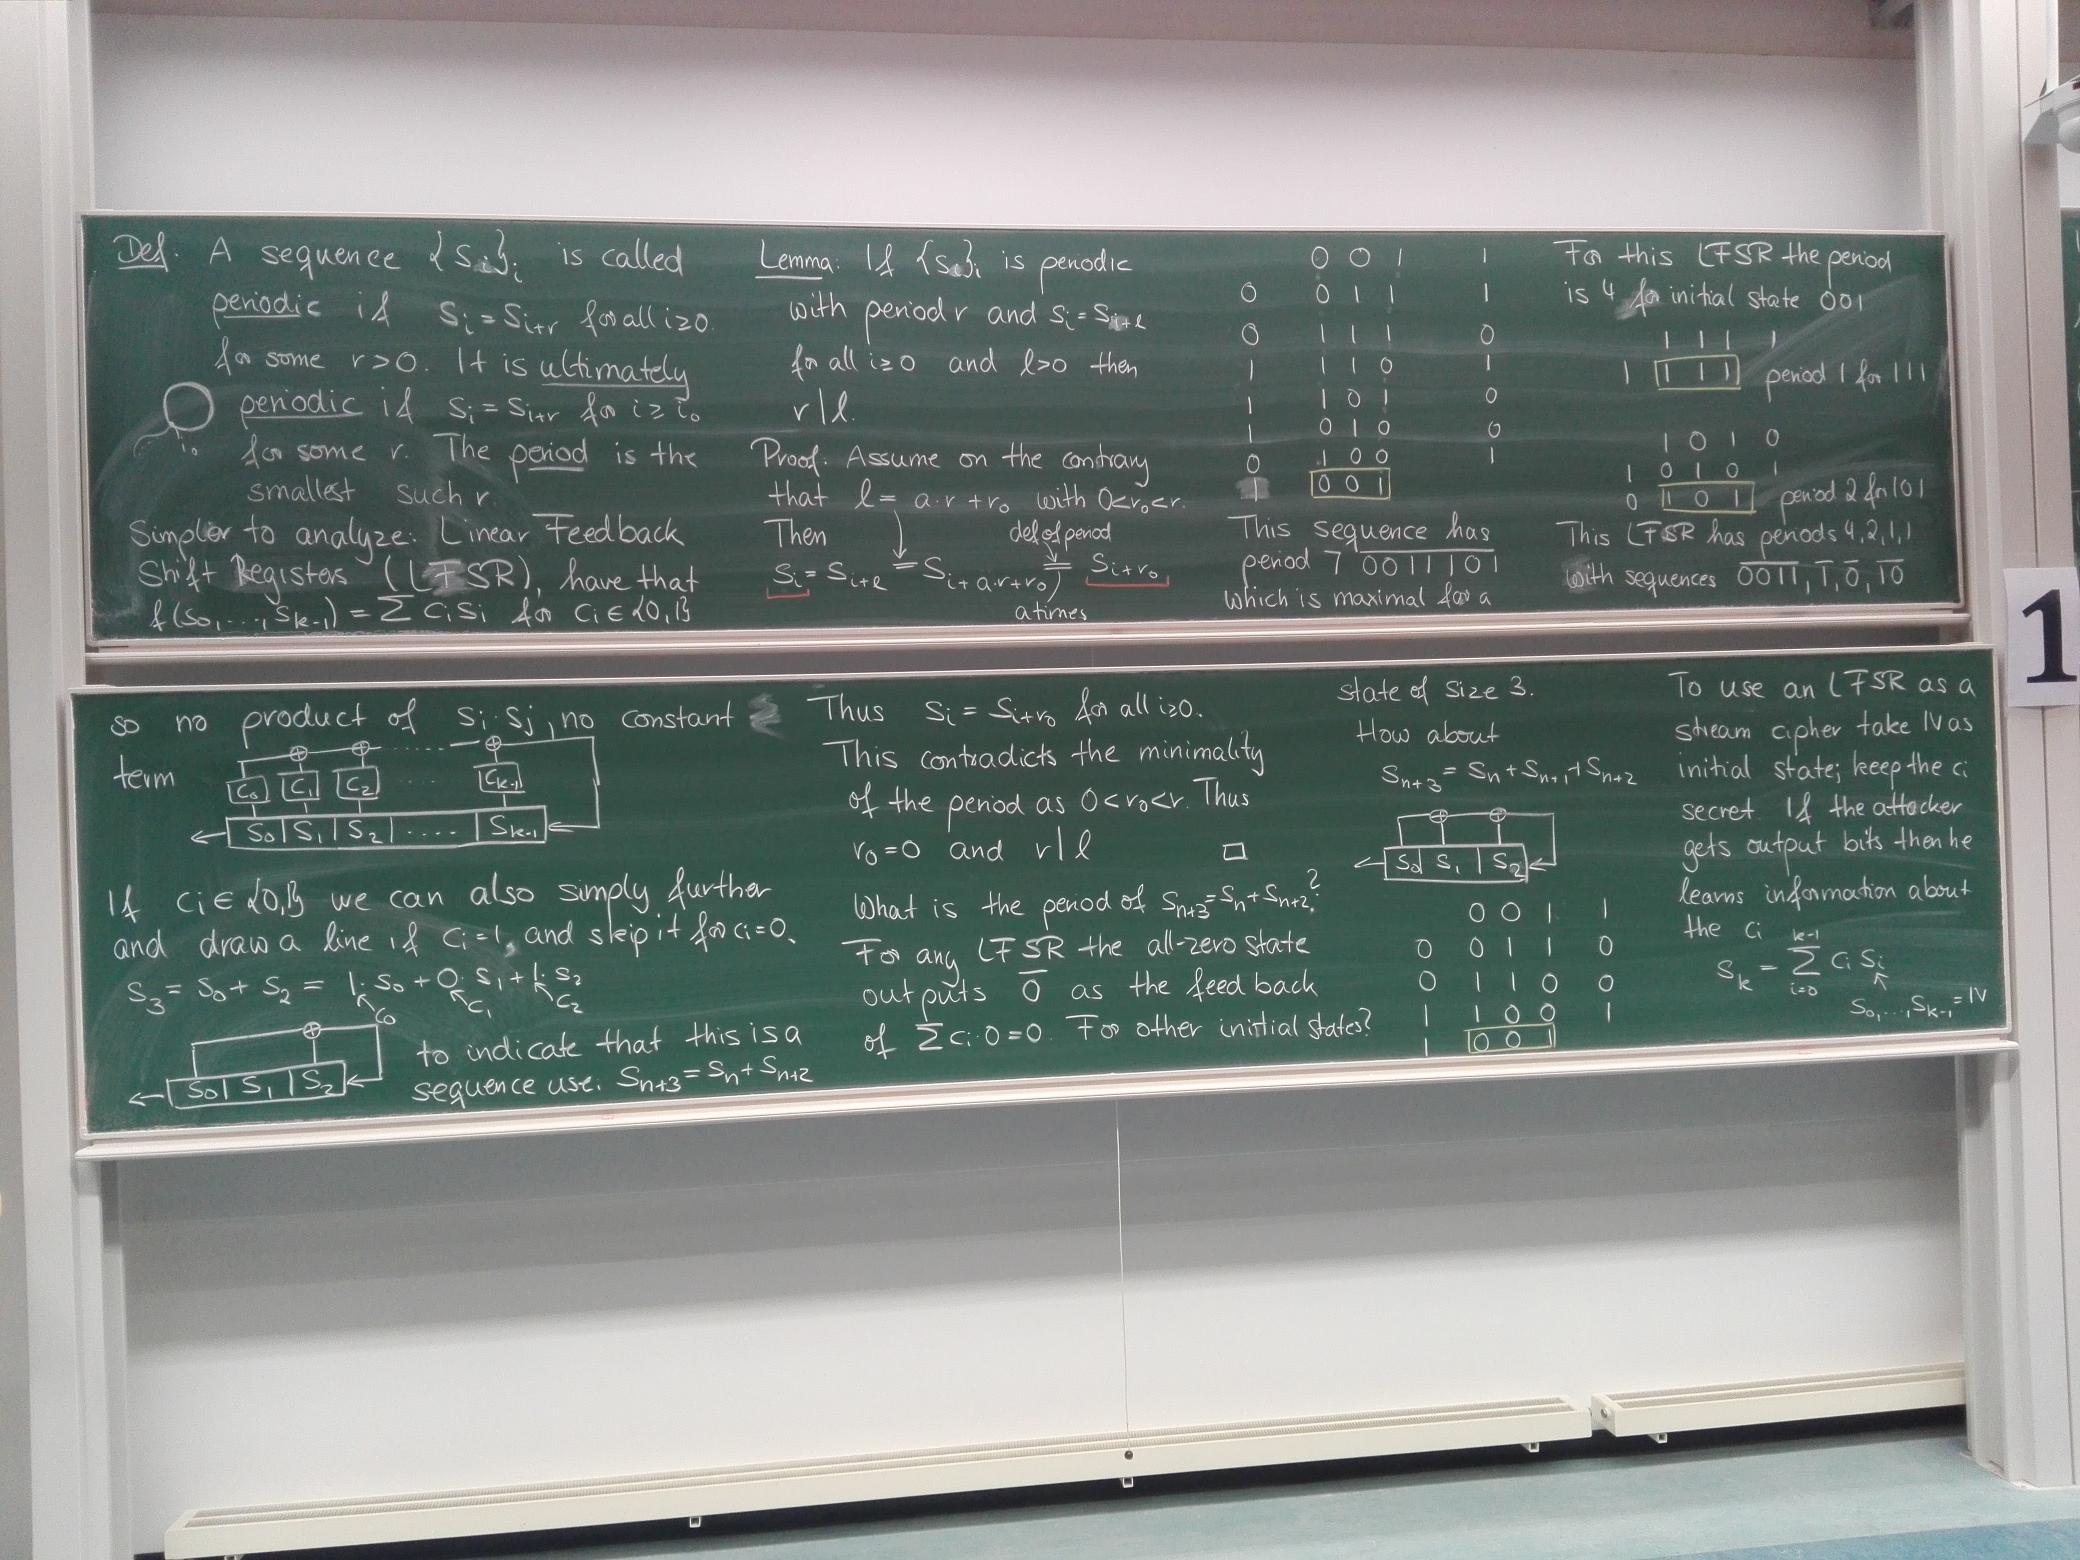 Def. A sequence {Si}i is called
periodic if Si = Si+r for all i≥0
for some r>0. It is ultimately
periodic if Si = Si+r for i ≥ i0
i0
for some r. The period is the
smallest such r.
Simpler to analyze: Linear Feedback
Shift Registers (LFSR), have that
f(S0,...,Sk-1) = Σ CiSi for Ci ∈ {0,1}
so no product of Si·Sj, no constant
term
C0 C1 C2 .... Ck-1
S0|S1|S2|.....|Sk-1
If Ci ∈ {0,1} we can also simply further
and draw a line if Ci=1, and skip it for Ci=0.
S3 = S0 + S2 = 1·S0 + 0·S1 + 1·S2
C0 C1 C2
S0|S1|S2
to indicate that this is a
sequence use: Sn+3 = Sn + Sn+2
Lemma: If {Si}i is periodic
with period r and Si = Si+l
for all i≥0 and l>0 then
r|l.
Proof. Assume on the contrary
that l = a·r + r0 with 0<r0<r.
Then def of period
Si = Si+l = Si+a·r+r0 = Si+r0
a times
Thus Si = Si+r0 for all i≥0.
This contradicts the minimality
of the period as 0<r0<r. Thus
r0=0 and r|l □
What is the period of Sn+3=Sn+Sn+2?
For any LFSR the all-zero state
outputs 0̅ as the feedback
of Σci·0=0. For other initial states?
0 0 1 1
0 0 1 1 1
0 1 1 1 0
1 1 1 0 1
1 1 0 1 0
1 0 1 0 0
0 1 0 0 1
1 0 0 1
This sequence has
period 7 0011101
which is maximal for a
state of size 3.
How about
Sn+3 = Sn + Sn+1 + Sn+2
S0|S1|S2
0 0 1 1
0 0 1 1 0
0 1 1 0 0
1 1 0 0 1
1 0 0 1
For this LFSR the period
is 4 for initial state 001
1 1 1 1
1 1 1 1 period 1 for 111
1 0 1 0
1 0 1 0 1
0 1 0 1 period 2 for 101
This LFSR has periods 4,2,1,1
with sequences 0011, 1̅, 0̅, 10
To use an LFSR as a
stream cipher take IV as
initial state; keep the ci
secret. If the attacker
gets output bits then he
learns information about
the ci
Sk = Σ ci Si
k-1
i=0
S0,...,Sk-1=IV
1